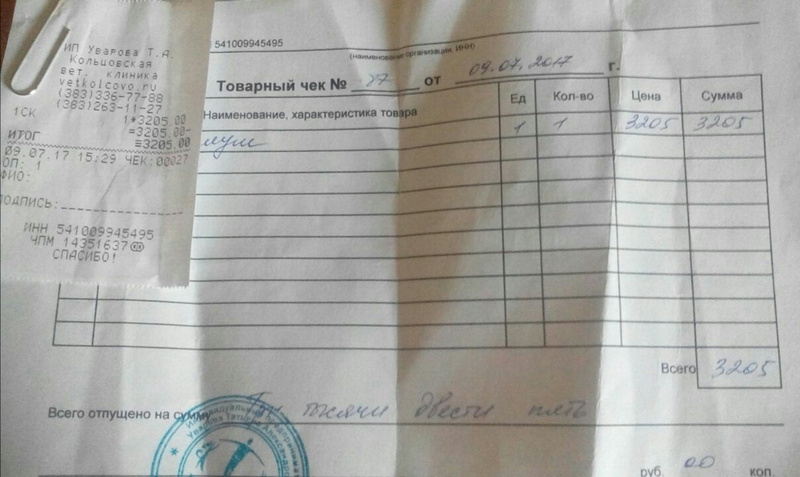 ИП Уварова Т.А.
Кольцовская
вет. клиника
vetkolcovo.ru
(383)336-77-88
(383)263-11-27
1СК 1*3205.00
=3205.00-
ИТОГ ≡3205.00
09.07.17 15:29 ЧЕК:00027
ОП: 1
ФИО:
ПОДПИСЬ:
ИНН 541009945495
ЧПМ 14351637
СПАСИБО!
541009945495
(наименование организации, ИНН)
Товарный чек № 27 от 09.07.2017 г.
Наименование, характеристика товара Ед Кол-во Цена Сумма
1 1 3205 3205
Всего 3205
Всего отпущено на сумму Три тысячи двести пять
руб. 00 коп.
Индивидуальный предприниматель
Уварова Татьяна Александровна